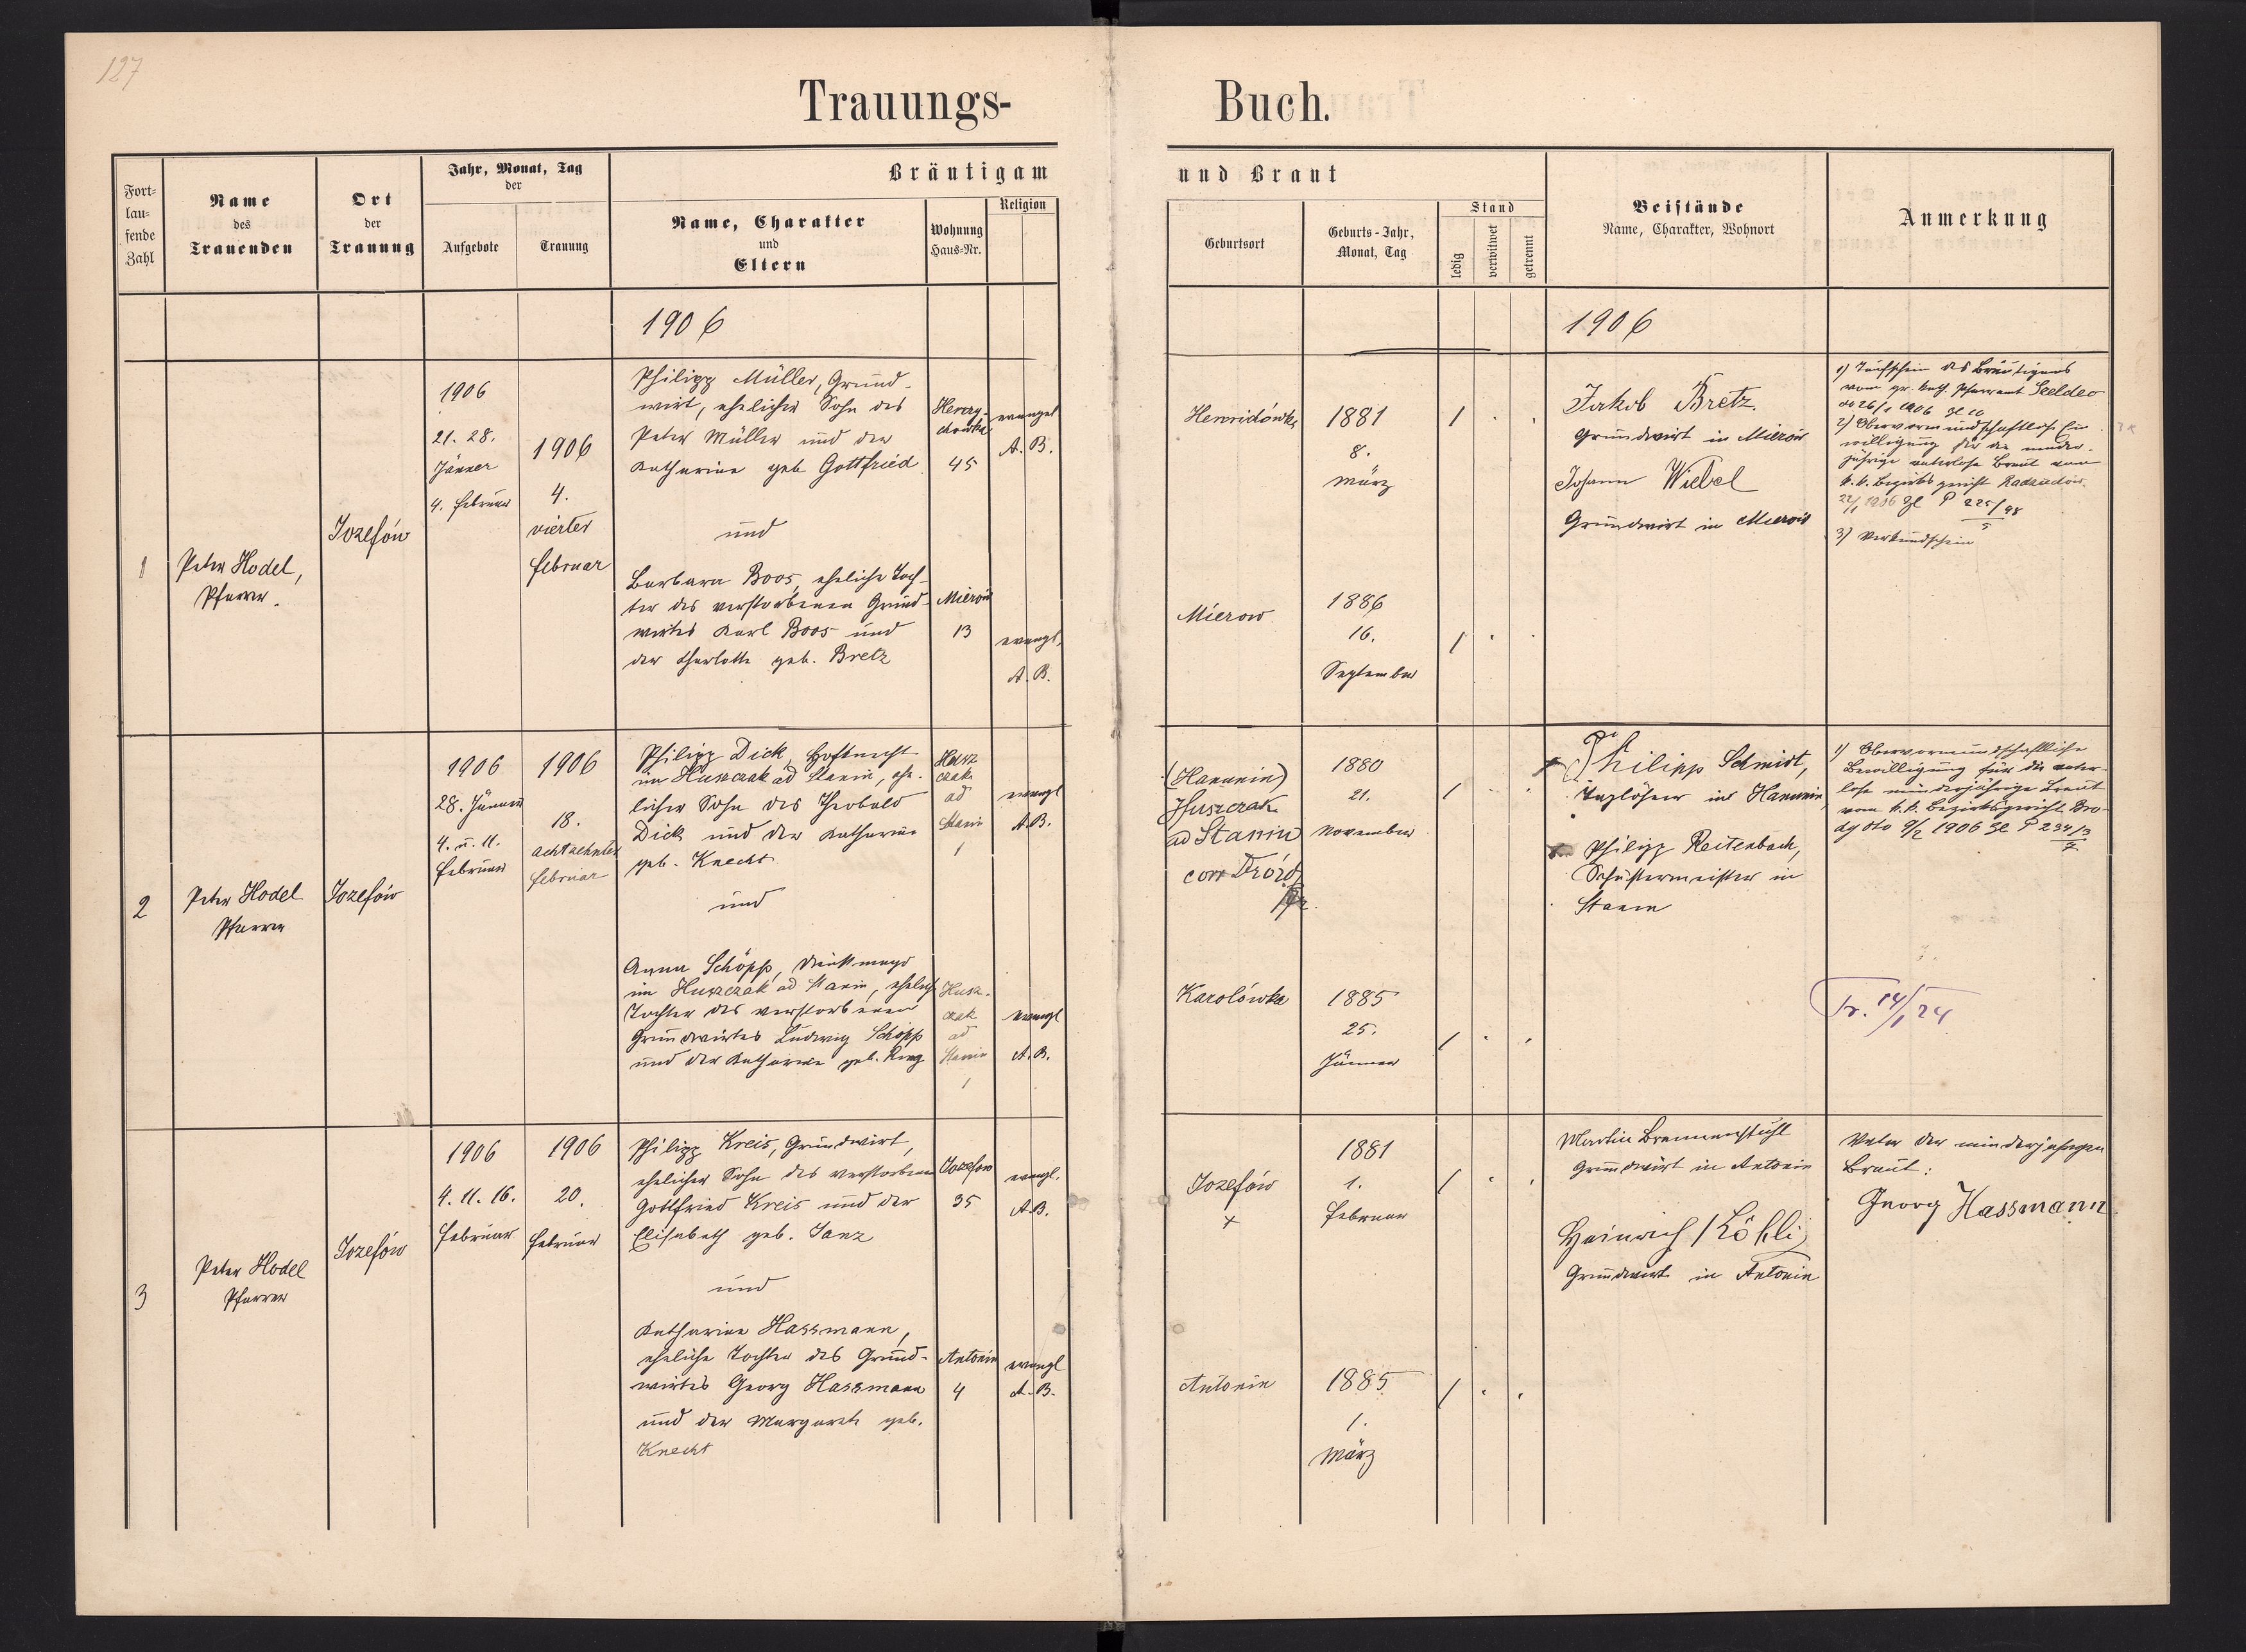 127
Trauungs- Buch.
Fort-
lau-
fende
Zahl
Name
des
Trauenden
Ort
der
Trauung
Jahr, Monat, Tag
der
Aufgebote
Trauung
Bräutigam und Braut
Name, Charakter
und
Eltern
Wohnung
Haus-Nr.
Religion
Geburtsort
Geburts-Jahr,
Monat, Tag
Stand
ledig
verwitwet
getrennt
Beistände
Name, Charakter, Wohnort
Anmerkung
1906
1906
1
Peter Hodel,
Pfarrer.
Jozefów
1906
21. 28.
Jänner
4. Februar
1906
4.
vierter
Februar
Philipp Müller, Grund-
wirt, ehelicher Sohn des
Peter Müller und der
Katharina geb Gottfried
45
evangel
A. B.
und
Barbara Boos, eheliche Toch-
ter des verstorbenen Grund-
wirtes Karl Boos und
der Charlotte geb. Bretz
Mierów
13
evangl.
A. B.
1881
8.
März
1
Mierow
1886
16.
September
1
Jakob Bretz.
Grundwirt in Mierów
Johann Wiebel
Grundwirt in Mierów
1) Taufschein des Bräutigams
vom gr. kath. Pfarramt
26/1 1906
2) Obervormundschaftliche Ein
willigung für die minder-
jährige vaterlose Braut vom
k. k. Bezirksgericht Radziechów
22/1 1906 Zl P 225/98
5
3) Verkündschein
2
Peter Hodel
Pfarrer
Jozefów
1906
28. Jänner
4. u. 11.
Februar
1906
18.
achtzehnter
Februar
Philipp Dick, Hofknecht
im Huszczak ad Stanin, ehe-
licher Sohn des Theobald
Dick und der Katharina
geb. Knecht
Husz
czak
ad
Stanin
1
evangl
A.B.
und
Anna Schöpp, Dienstmagd
im Huszczak ad Stanin, ehelich
Tochter des verstorbenen
Grundwirtes Ludwig Schöpp
und der Katharina geb. Ring
Husz-
czak
ad
Stanin
1
evangl
A. B.
(Hanunin)
Huszczak
ad Stanin
1880
21.
November
1
Karolówka
1885
25.
Jänner
1
Philipp Schmidt,
Taglöhner in Hanunin
Philipp Reitenbach,
Schustermeister in
Stanin
1) Obervormundschaftliche
Bewilligung für die vater-
lose minderjährige Braut
vom k. k. Bezirksgericht Bro-
dy dto 9/2 1906 Zl P 234/3
Tr. 14/1 24
3
Peter Hodel
Pfarrer
Jozefów
1906
4. 11. 16.
Februar
1906
20.
Februar
Philipp Kreis, Grundwirt,
ehelicher Sohn des verstorbenen
Gottfried Kreis und der
Elisabeth geb. Janz
Jozefow
35
evangl.
A.B.
und
Katharina Hassmann,
eheliche Tochter des Grund-
wirtes Georg Hassmann
und der Margareth geb.
Knecht
Antonin
4
evangl
A. B.
Jozefów
+
1881
1.
Februar
1
Antonin
1885
1.
März
1
Martin Brennenstuhl
Grundwirt in Antonin
Heinrich Köhli
Grundwirt in Antonin
Vater der minderjährigen
Braut:
Georg Hassmann